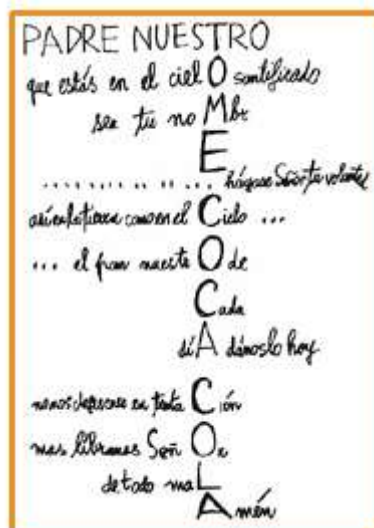 PADRE NUESTRO
que estás en el cielO santificado
sea tu noMbr
E
................ hágase Señor tu voluntad
así en la tierra como en el Cielo ...
... el pan nuestrO de
Cada
díA dánoslo hoy
no nos dejes caer en tentaCión
mas líbranos SeñOr
de todo maL
Amén